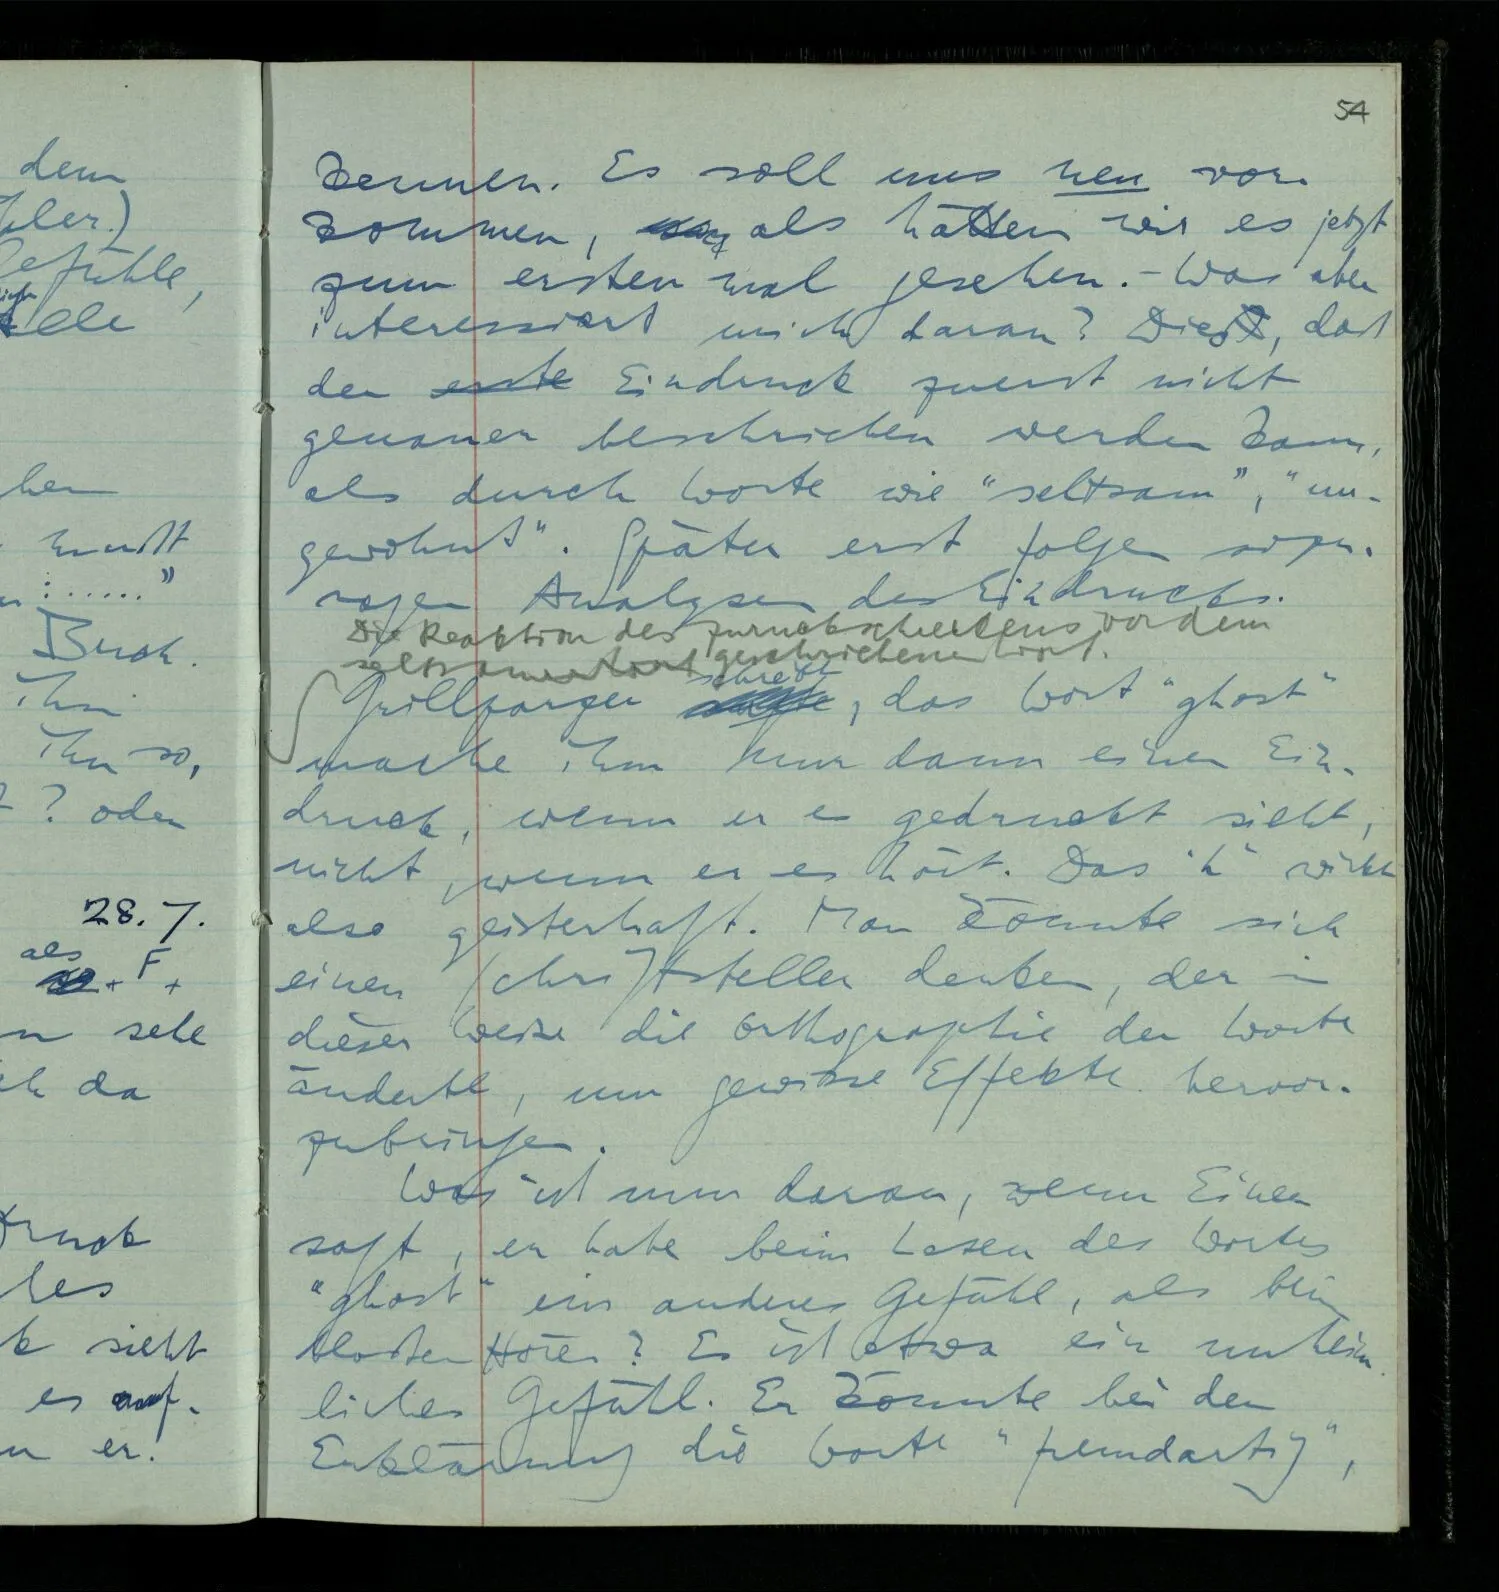 dem
hler.)
Gefühle,
elle
hen
musst
:......”
Buch.
ihn
ihn so,
? oder
28.7.
als F
sehe
ch da
druck
hes
k sieht
es auf-
er.
54
kennen. Es soll uns neu vor-
kommen, als hätten wir es jetzt
zum ersten mal gesehen. – Was aber
interessiert mich daran? Dies, dass
der erste Eindruck zuerst nicht
genauer beschrieben werden kann,
als durch Worte wie “seltsam”, “un-
gewohnt”. Später erst folgen sozu-
sagen Analysen des Eindrucks.
Die Reaktion des Zurückscheuens vor dem
seltsam geschriebenen Wort.
schreibt
Grillparzer, das Wort “ghost”
mache ihm nur dann einen Ein-
druck, wenn er es gedruckt sieht,
nicht, wenn er es hört. Das “h” wirkt
also geisterhaft. Man könnte sich
einen Schriftsteller denken, der in
dieser Weise die Orthographie der Worte
änderte, um gewisse Effekte hervor-
zubringen.
Was ist nun daran, wenn Einer
sagt, er habe beim Lesen des Wortes
“ghost” ein anderes Gefühl, als beim
blossen Hören? Es ist etwa ein unheim
liches Gefühl. Er könnte bei der
Erklärung die Worte “fremdartig”,